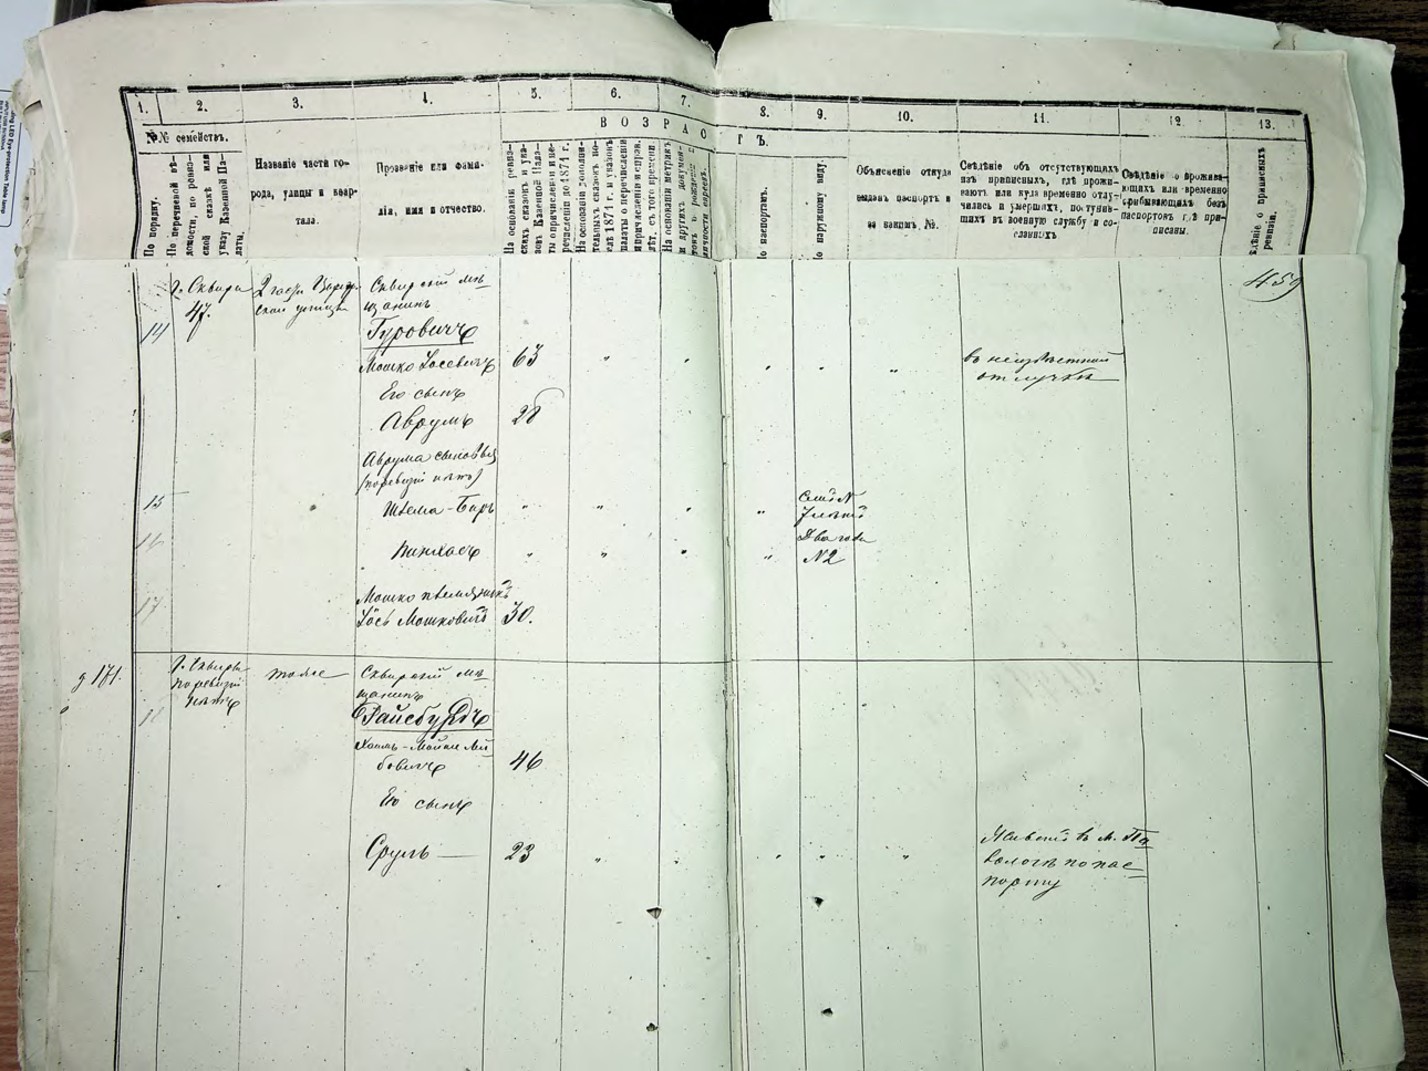 1.
2.
3.
4.
5.
6.
7.
8.
9.
10.
11.
12.
13.
№№ семействъ.
По порядку.
По перечневой вѣ-
домости, по ревиз-
ской сказкѣ или
указу Казенной Па-
латы.
Названіе части го-
рода, улицы и квар-
тала.
Прозваніе или фами-
лія, имя и отчество.
ВОЗРАСТЪ.
На основаніи ревиз-
скихъ сказокъ и ука-
зовъ Казенной Пала-
ты о причисленіи и пе-
речисленіи до 1871 г.
На основаніи дополни-
тельныхъ сказокъ по-
слѣ 1871 г. и указовъ
палаты о перечисленіи
и причисленіи и справ.
лѣт. съ того времени.
На основаніи метрик.
и другихъ докумен-
товъ о рожденіи
личности евреевъ.
По паспортамъ.
По наружному виду.
Объясненіе откуда
выданъ паспортъ и
за какимъ №.
Свѣдѣніе объ отсутствующихъ
изъ приписныхъ, гдѣ прожи-
ваютъ или куда временно отлу-
чились и умершихъ, поступив-
шихъ въ военную службу и со-
сланныхъ
Свѣдѣніе о прожива-
ющихъ или временно
прибывающихъ безъ
паспортовъ гдѣ при-
писаны.
о приписныхъ
ревизіи.
459
г. Сквира
47.
2 части
ской улицы
Сквирскій мѣ-
щанинъ
14
Гуровичъ
Мошко Іосевичъ 63 " " " " "
въ неизвѣстной
отлучкѣ
Его сынъ
Аврумъ 28
Аврума сыновья
(по ревизіи нѣтъ)
15
Шлема-Беръ " " " "
Семи №
7 лѣтъ
16
Пинхасъ " " " "
Два года
№2
17
Мошко племянникъ
Іось Мошковичъ 30.
д 171.
г. Сквиры
по ревизіи
нѣтъ
тоже
Сквирскій мѣ-
щанинъ
18
Райсбурдъ
Хаимъ-Мойше Лей-
бовичъ 46
Его сынъ
Сруль — 23 " " " "
Живетъ въ м. Па-
волочѣ по пас-
порту